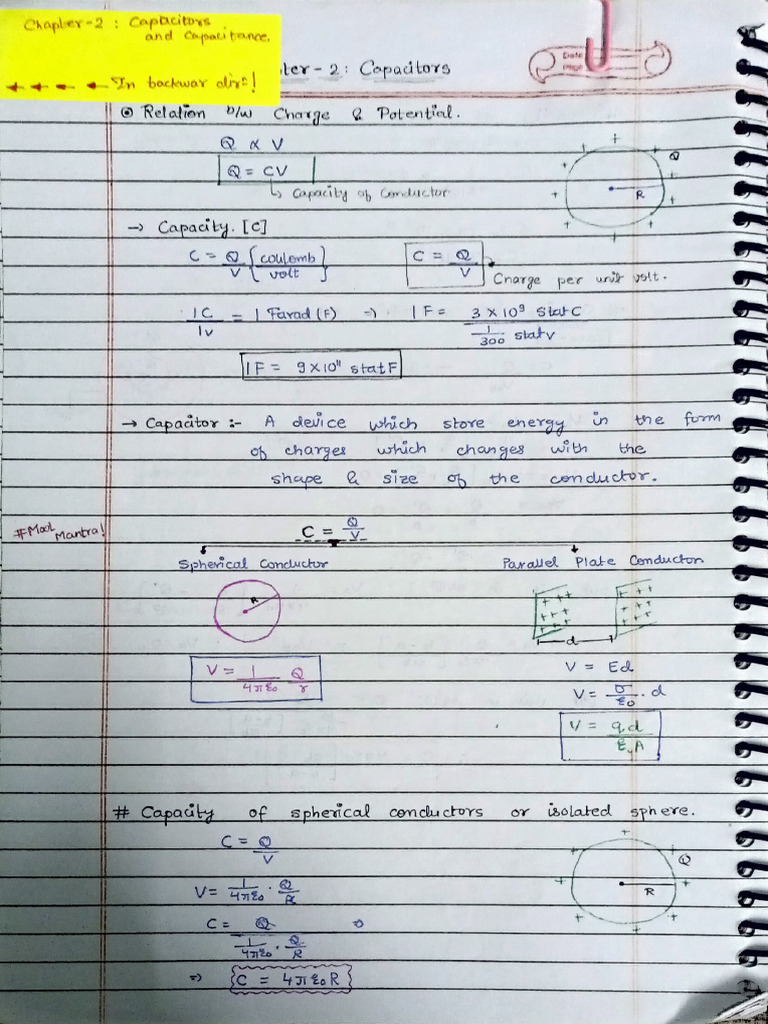 Chapter-2 : Capacitors
and Capacitance.
In backwar dirⁿ!
ter - 2 : Capacitors
Date
Page
⊙ Relation b/w Charge & Potential.
Q ∝ V
Q = CV
↳ Capacity of Conductor
Q
R
→ Capacity. [C]
C = Q/V {coulomb/volt}
C = Q/V
Charge per unit volt.
1C/1V = 1 Farad (F) ⇒ 1F = 3 × 10⁹ statC / (1/300 statV)
1F = 9×10¹¹ statF
→ Capacitor :- A device which store energy in the form
of charges which changes with the
shape & size of the conductor.
#Mool Mantra!
C = Q/V
Spherical Conductor
Parallel Plate Conductor
R
d
V = 1/4πε₀ Q/r
V = Ed
V = σ/ε₀ . d
V = q.d/ε₀A
# Capacity of spherical conductors or isolated sphere.
C = Q/V
Q
R
V = 1/4πε₀ . Q/R
C = Q / (1/4πε₀ . Q/R) ⇒
⇒ C = 4πε₀R